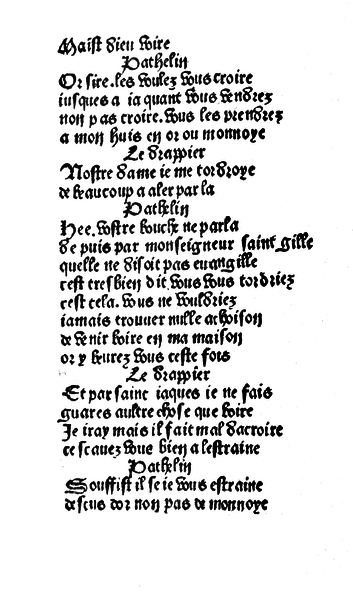 Maist dieu voire
Pathelin
Or sire. les voulez vous croire
iusques a ia quant vous vendrez
non pas croire. vous les prendrez
a mon huis en or ou monnoye
Le drappier
Nostre dame ie me tordroye
de beaucoup a aler par la
Pathelin
Hee. vostre bouche ne parla
de puis par monseigneur saint gille
quelle ne disoit pas euangille
cest tresbien dit vous vous tordriez
cest cela. vous ne vouldriez
iamais trouuer nulle achoison
de venir boire en ma maison
or y beurez vous ceste fois
Le drappier
Et par saint iaques ie ne fais
gueres aultre chose que boire
Je iray mais il fait mal dacroire
ce scauez vous bien a lestraine
Pathelin
Souffist il se ie vous estraine
descus dor non pas de monnoye